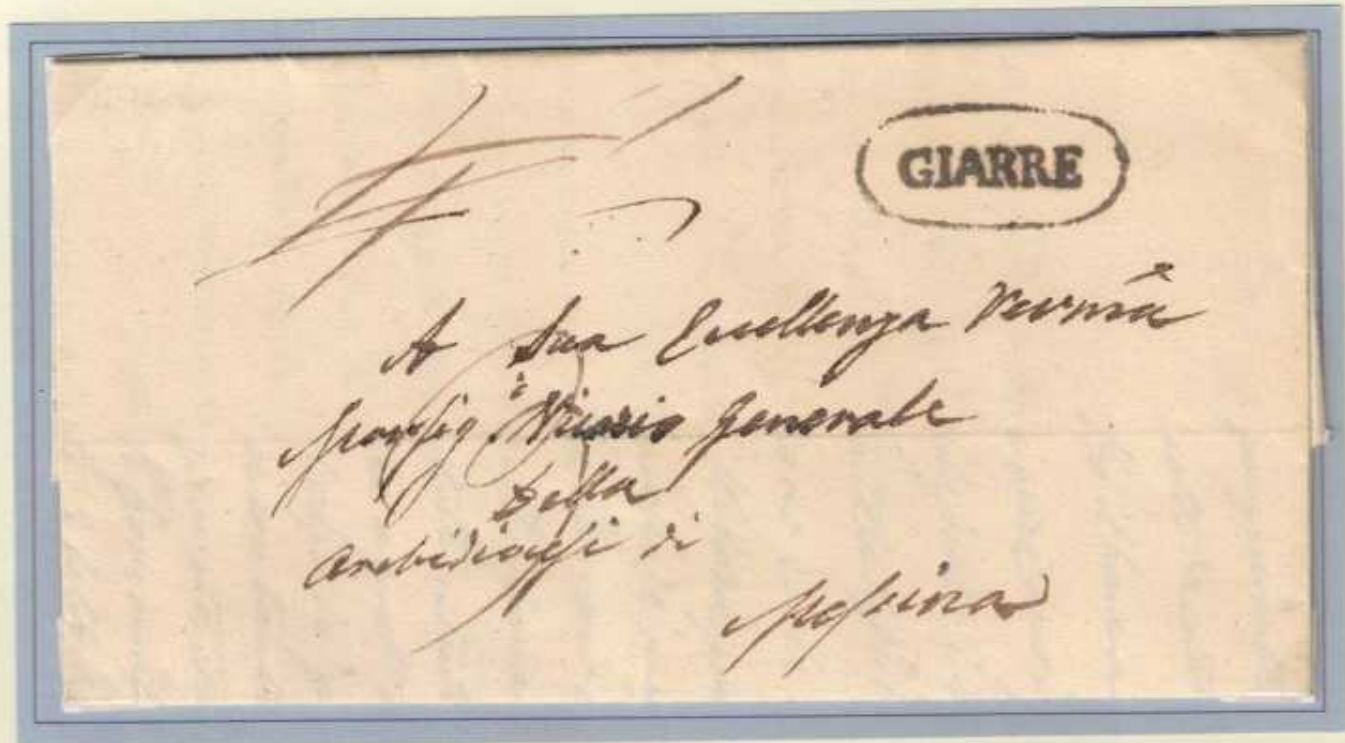 GIARRE
A Sua Eccellenza Revma
Monsig Vicario Generale
Della
Archidiocesi di
Messina